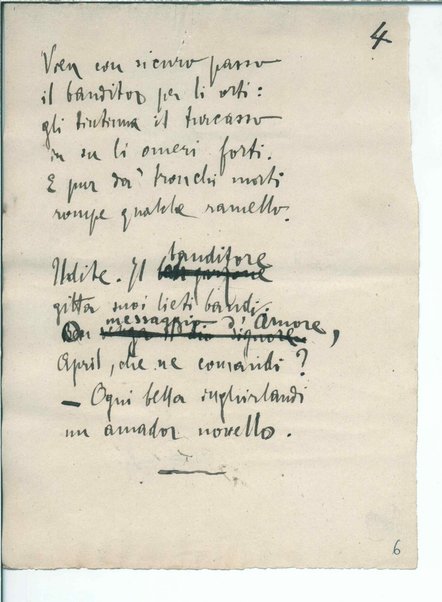 4
Vien con sicuro passo
il banditor per li orti:
gli tintinna il turcasso
in su li omeri forti.
E pur da' tronchi morti
rompe qualche ramello.
banditore
Udite. Il
gitta suoi lieti bandi.
messaggio d'Amore,
O
April, che ne comandi?
— Ogni bella inghirlandi
un amador novello.
6